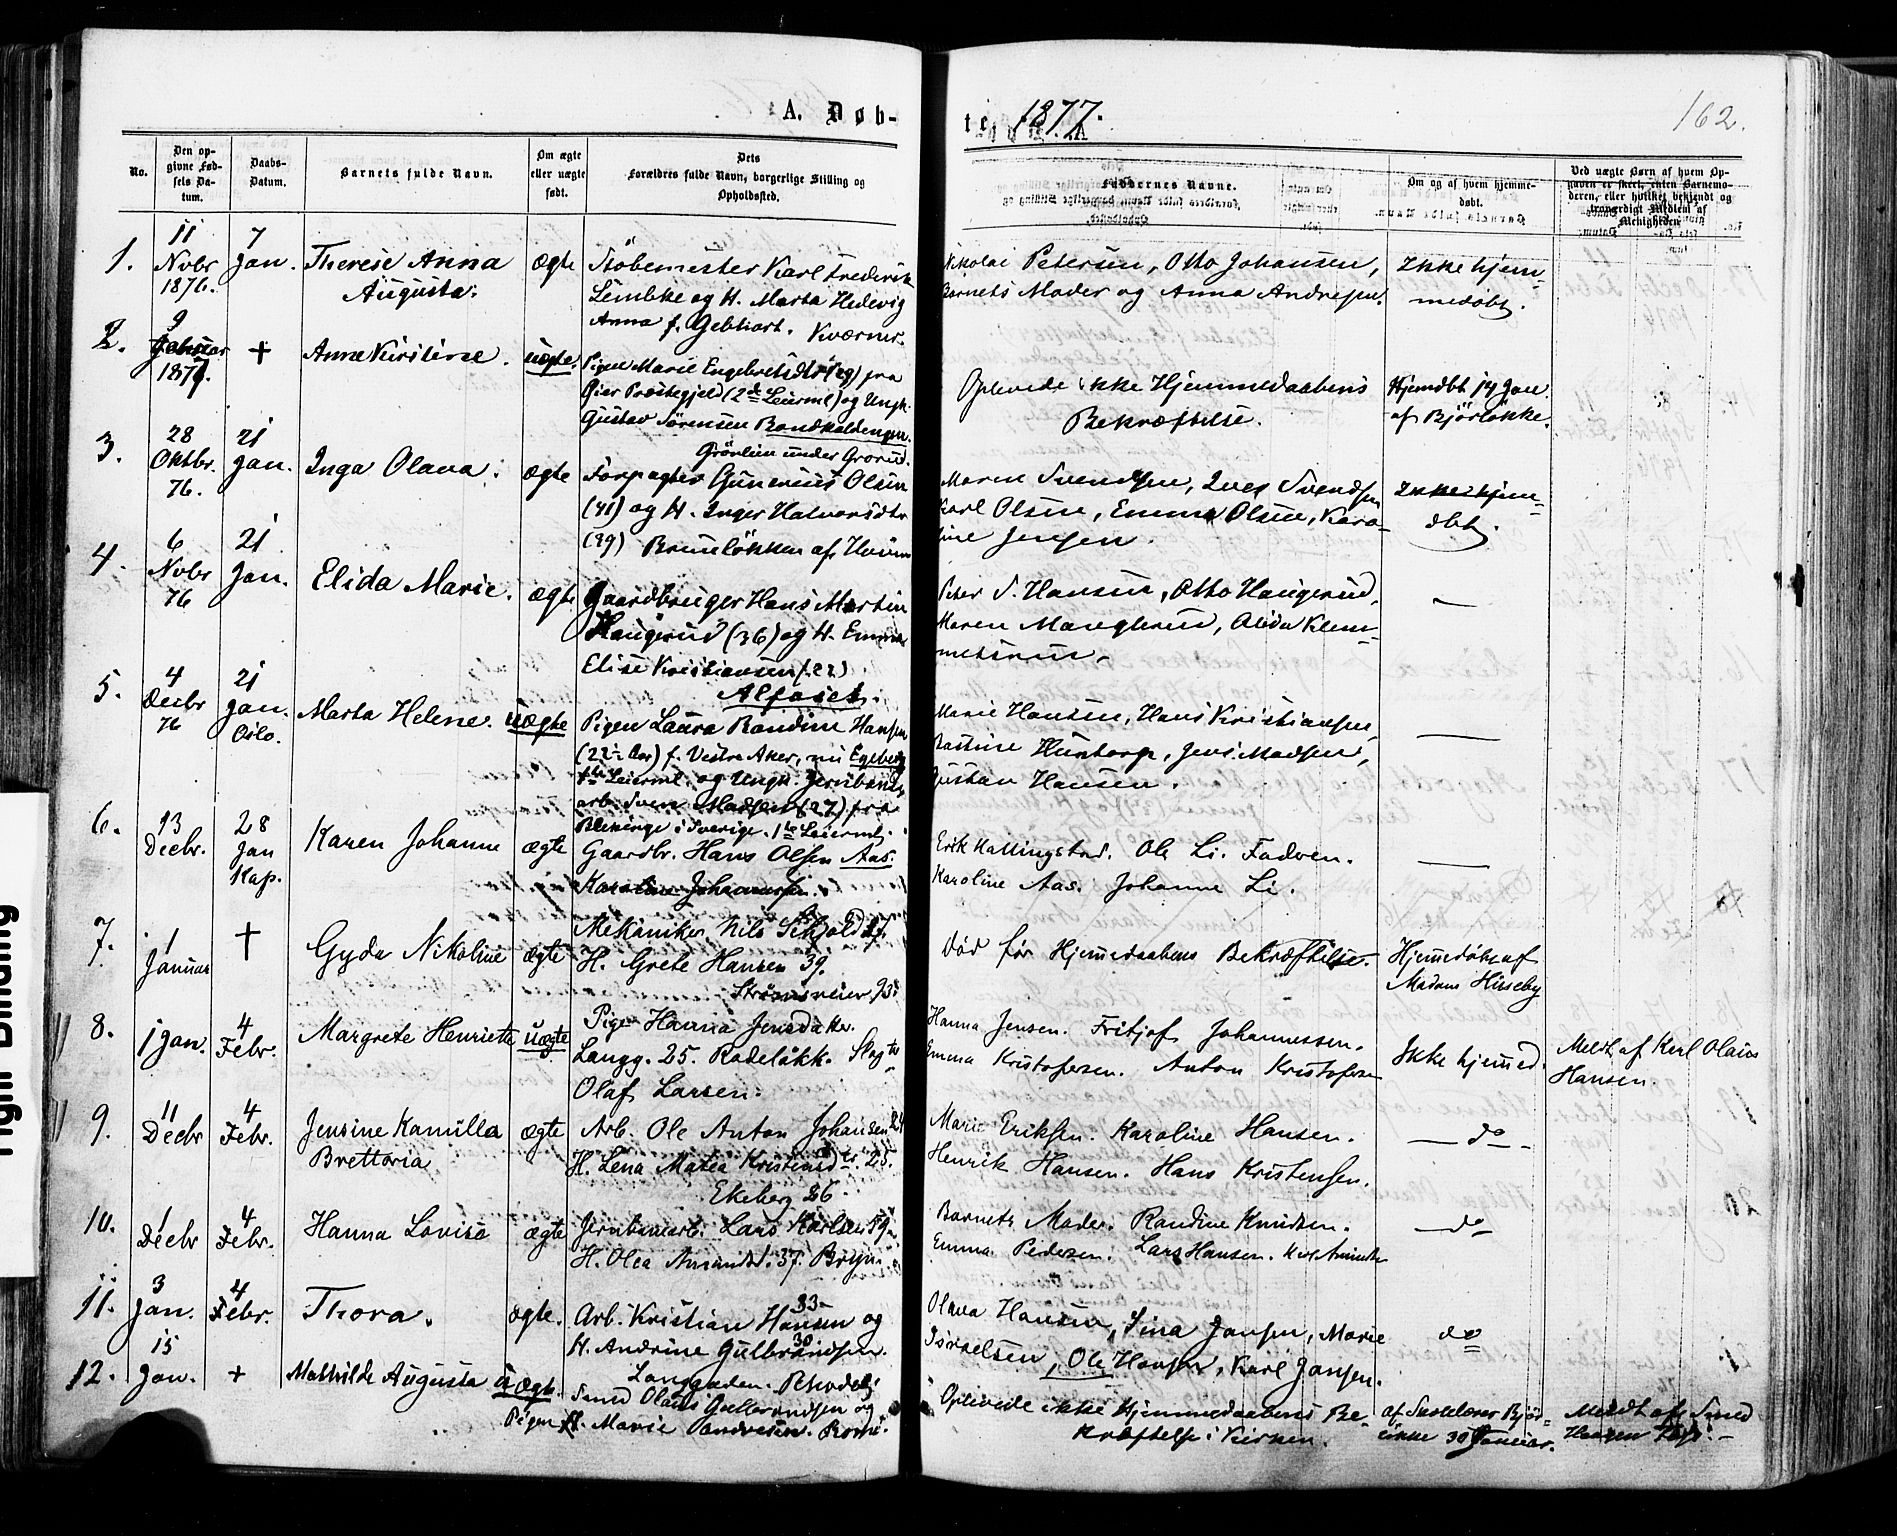 A. Døb-
te 1877.
162.
No.
Den op-
givne Fød-
sels Da-
tum.
Daabs-
Datum.
Barnets fulde Navn.
Om ægte
eller uægte
født.
Dets
Forældres fulde Navn, borgerlige Stilling og
Opholdssted.
Faddernes Navne.
Om og af hvem hjemme-
døbt.
Ved uægte Børn af hvem Op-
gaven er skeet, enten Barnemo-
deren, eller hvilket bekjendt og
troværdigt Medlem af
Menigheden.
1.
11
Novbr
1876.
7
Jan.
Therese Anna
Augusta.
ægte
Støbemester Karl Frederik
Lembke og H. Marta Hedevig
Anna f. Gebhart. Kværner.
Nikolai Petersen, Otto Johansen,
Barnets Moder og Anna Andresen.
Ikke hjem-
medøbt.
2.
9
Januar
1877.
+
Anne Kirstine.
uægte.
Pigen Marie Engebretsdtr fra
Øier Præstegjeld (2de Leierml) og Ungk.
Gustav Sørensen Bondkaldengen.
Oplevede ikke Hjemmedaabens
Bekræftelse.
Hjemdbt 14 Jan.
af Bjørløkke.
3.
28
Oktbr.
76.
21
Jan.
Inga Olava.
ægte
Grorlien under Grorud.
Forpagter Gunerius Olsen
(41) og H. Inger Halvorsdtr
(39) Bruneløkken af
Maren Svendsen, Svendsen
Karl Olsen, Emma Olsen, Karo-
line Jensen.
Ikke hjem-
dbt.
4.
6
Novbr
76
21
Jan.
Elida Marie.
ægte
Gaardbruger Hans Martin
Haugerud (36) og H. Emma
Elise Kristiansen (22)
Alfaset.
Peter S. Hansen, Otto Haugerud,
Maren Manglerud, Alida Klem-
metsrud.
—
5.
4
Decbr
76
21
Jan.
Oslo.
Marta Helene.
uægte
Pigen Laura Randine Hansen
(22½ Aar) f. Vestre Aker, nu Egeberg
1ste Leierml. og Ungk. Jernbane
arb. Sven Madsen (27) fra
Blekinge i Sverige. 1ste Leierml.
Marie Hansen, Hans Kristiansen,
Hans Jens Madsen,
Gustav Hansen.
—
6.
13
Decbr.
28
Jan
Kap.
Karen Johanne
ægte
Gaardbr. Hans Olsen Aas.
Karoline Johannessen.
Erik Kallingstad. Ole Li. Fadren.
Karoline Aas. Johanne Li.
—
7.
1
Januar
†
Gyda Nikoline
ægte
Mekaniker Nils
H. Grete Hansen 39.
Strømsveien 93.
Død før Hjemmedaabens Bekræftelse.
Hjemmedøbt af
Madam Hisseby
8.
1 Jan.
4
Febr.
Margrete Henriette
uægte
Pige Hanna Jensdatter.
Langg. 25. Rodeløkk.
Olaf Larsen.
Hanna Jensen. Fritjof Johannessen.
Emma Kristofersen. Anton Kristofersen
Ikke hjemmed.
Meldt af Karl Olaus
Hansen.
9.
11
Decbr
4
Febr.
Jensine Kamilla
Brettoria
ægte
Arb. Ole Anton Johansen 24
H. Lena Matea Kristensdtr. 25.
Ekeberg 26.
Marie Eriksen. Karoline Hansen.
Henrik Hansen. Hans Kristensen.
— do —
10.
1
Decbr
4
Febr.
Hanna Lovise
ægte
Jernbanearb. Lars Karlsen 39
H. Olea Amundsd. 37. Bryn.
Barnets Moder. Randine Knudsen.
Emma Pedersen. Lars Hansen.
— do
11.
3
Jan.
4
Febr.
Thora.
ægte.
Arb. Kristian Hansen 33 og
H. Andrine Gulbrandsen. 30
Langgaden.
Olava Hansen, Sina Jansen, Marie
Israelsen, Ole Hansen, Karl Jansen.
do
12.
15
Jan.
+
Mathilde Augusta
uægte.
Smed Olaus Gulbrandsen og
Pigen Marie
Oplevede ikke Hjemmedaabens Be-
kræftelse i Kirken.
af Bjør-
løkke 30 Januar.
Meldt af Smed